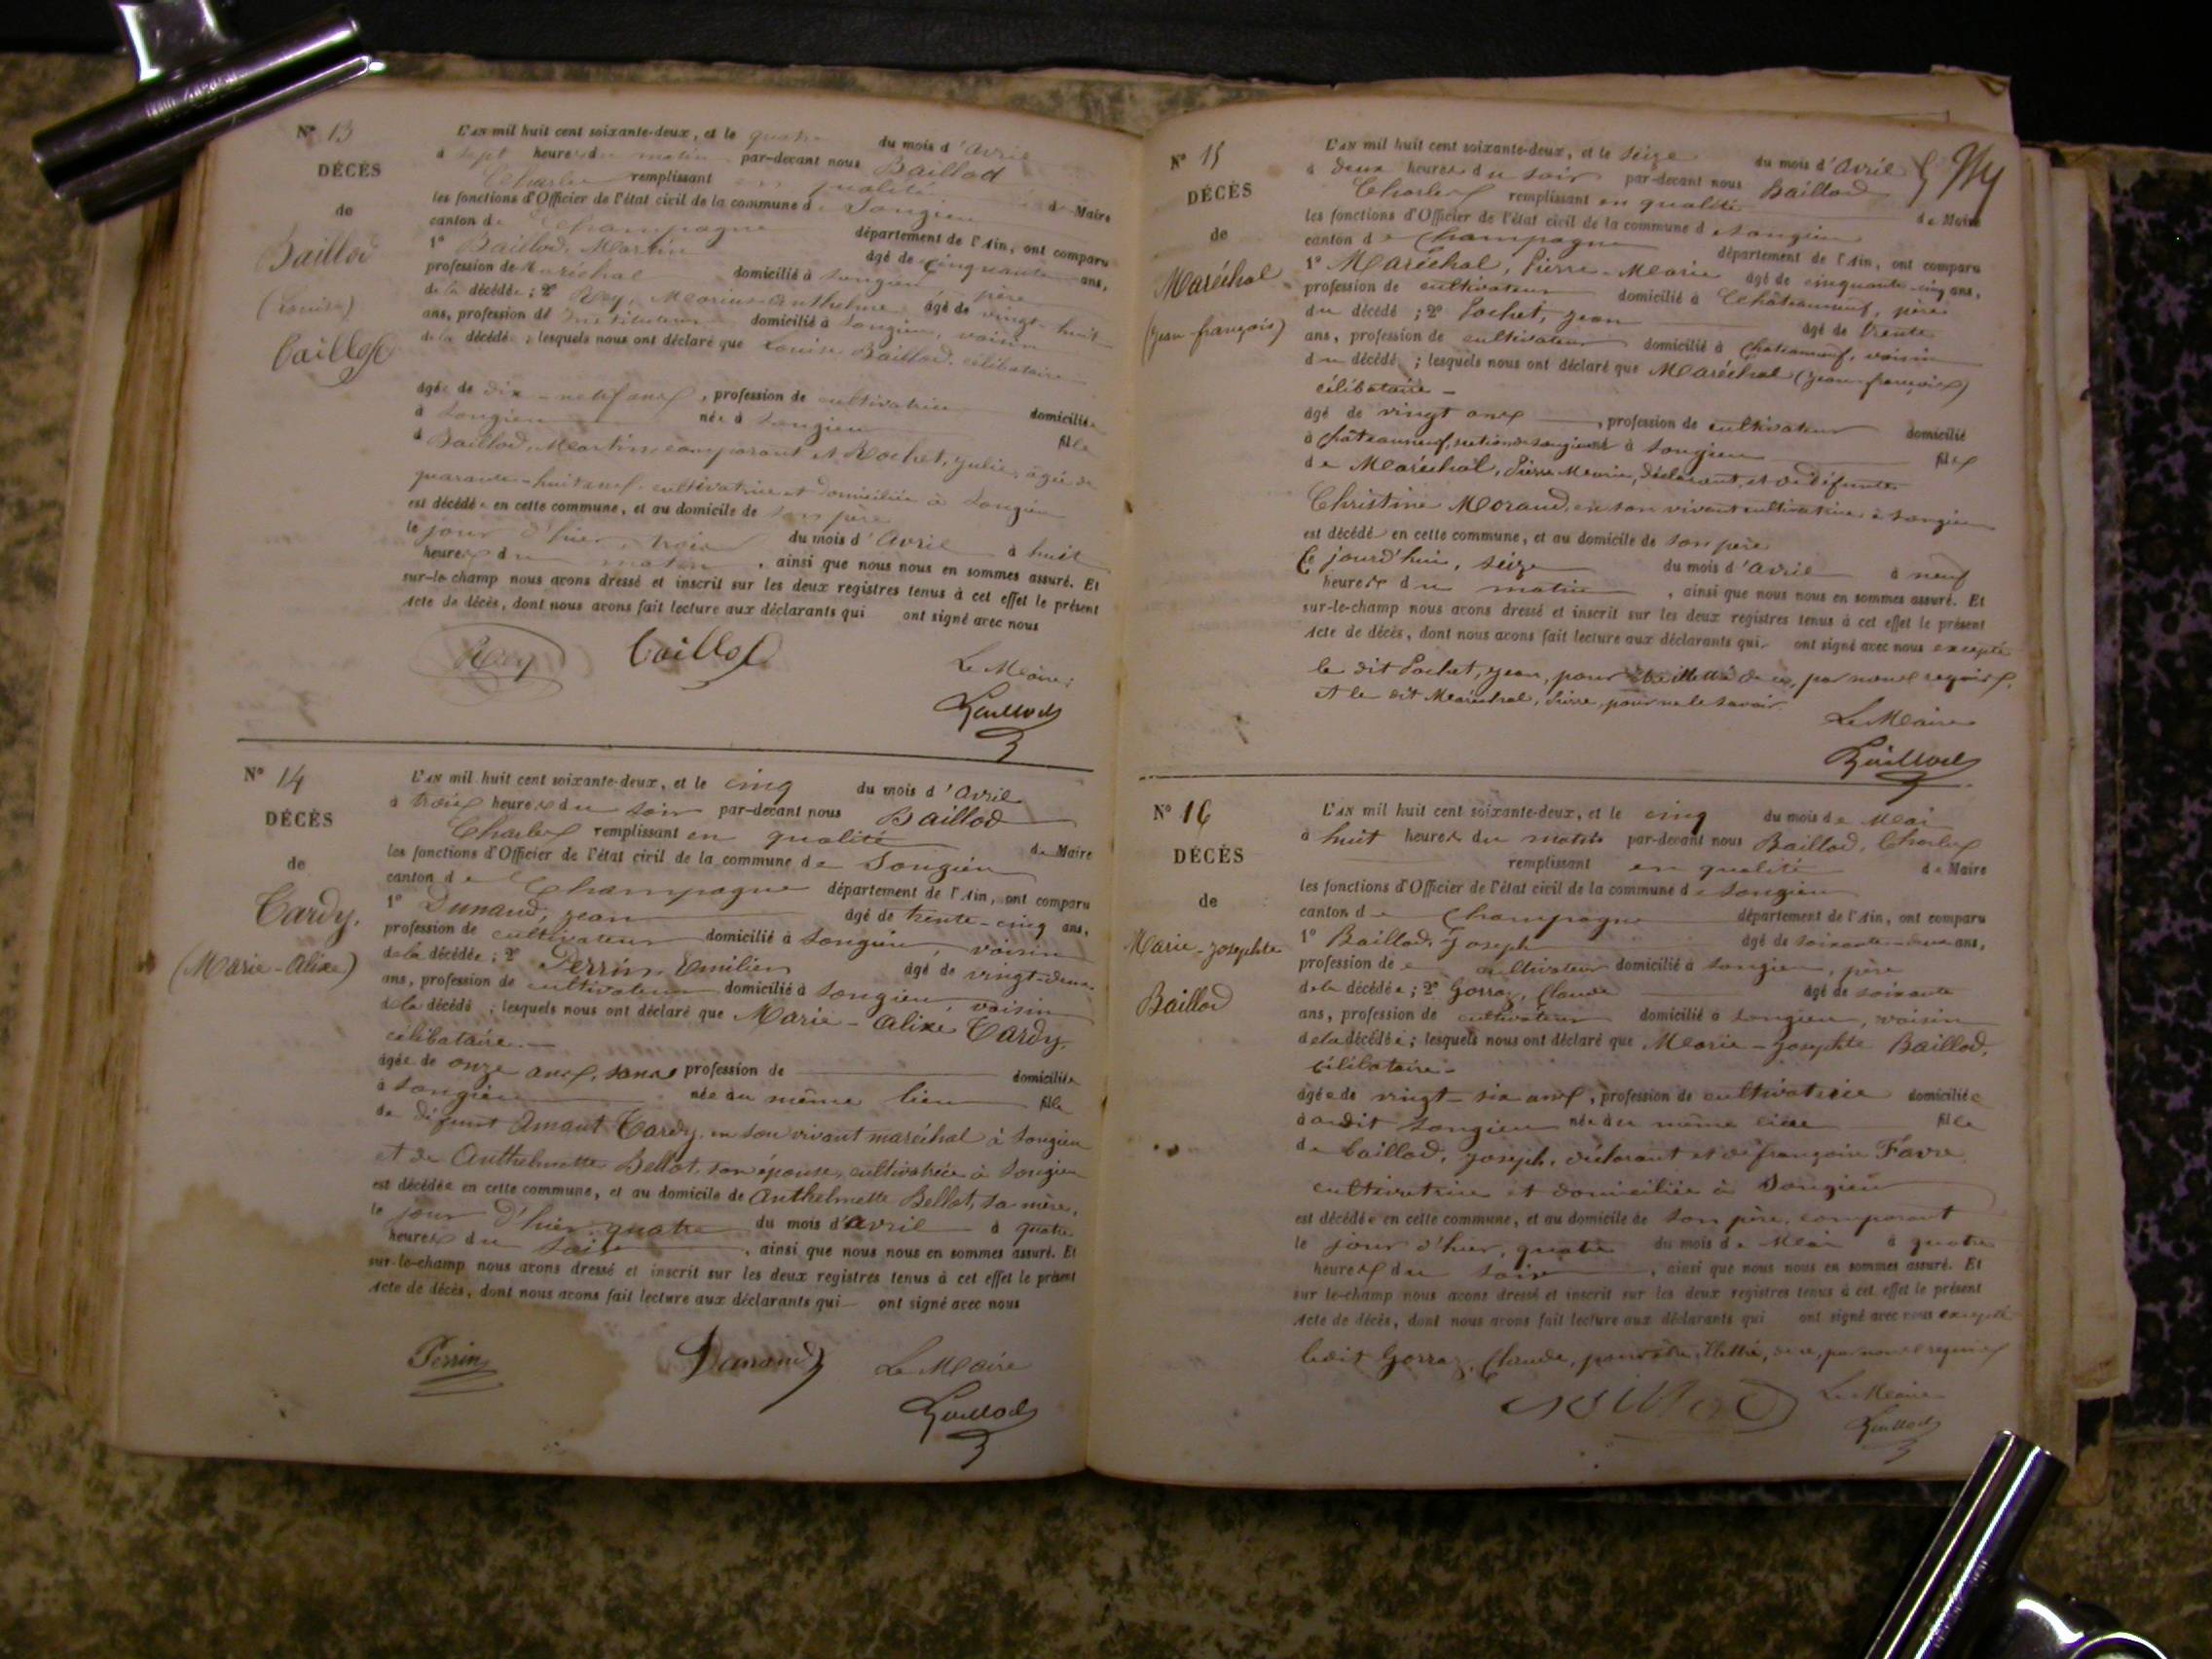 N° 13
DÉCÈS
de
Baillod
(Louise)
Baillod
L'AN mil huit cent soixante-deux, et le quatre du mois d'Avril
à sept heures du matin par-devant nous Baillod
Charles remplissant en qualité de Maire
les fonctions d'Officier de l'état civil de la commune de Songieu
canton de Champagne département de l'Ain, ont comparu
1° Baillod, Martin âgé de cinquante ans,
profession de maréchal domicilié à Songieu père
de la décédée ; 2° Rey, Marius Anthelme âgé de vingt-huit
ans, profession d'instituteur domicilié à Songieu, voisin
de la décédée ; lesquels nous ont déclaré que Louise Baillod, célibataire
âgée de dix-neuf ans, profession de cultivatrice domiciliée
à Songieu née à Songieu fille
à Baillod, Martin, comparant et Rochet, Julie, âgée de
quarante-huit ans, cultivatrice et domiciliée à Songieu
est décédée en cette commune, et au domicile de son père
le jour d'hier, trois du mois d'Avril à huit
heures du matin, ainsi que nous nous en sommes assuré. Et
sur-le-champ nous avons dressé et inscrit sur les deux registres tenus à cet effet le présent
Acte de décès, dont nous avons fait lecture aux déclarants qui ont signé avec nous
Rey Baillod
Le Maire
Baillod
N° 14
DÉCÈS
de
Tardy.
(Marie-Alixe)
L'AN mil huit cent soixante-deux, et le cinq du mois d'Avril
à trois heures du soir par-devant nous Baillod
Charles remplissant en qualité de Maire
les fonctions d'Officier de l'état civil de la commune de Songieu
canton de Champagne département de l'Ain, ont comparu
1° Dunand, Jean âgé de trente-cinq ans,
profession de cultivateur domicilié à Songieu, voisin
de la décédée ; 2° Perrin, Emilien âgé de vingt-deux
ans, profession de cultivateur domicilié à Songieu, voisin
de la décédé ; lesquels nous ont déclaré que Marie-Alixe Tardy,
célibataire.
âgée de onze ans, sans profession de domiciliée
à Songieu née au même lieu fille
de défunt Amant Tardy, en son vivant maréchal à Songieu
et de Anthelmette Bellot, son épouse, cultivatrice à Songieu
est décédée en cette commune, et au domicile de Anthelmette Bellot, sa mère,
le jour d'hier quatre du mois d'Avril à quatre
heures du soir, ainsi que nous nous en sommes assuré. Et
sur-le-champ nous avons dressé et inscrit sur les deux registres tenus à cet effet le présent
Acte de décès, dont nous avons fait lecture aux déclarants qui ont signé avec nous
Perrin Dunand Le Maire
Baillod
N° 15
DÉCÈS
de
Maréchal
(Jean-françois)
L'AN mil huit cent soixante-deux, et le seize du mois d'Avril
à deux heures du soir par-devant nous Baillod
Charles remplissant en qualité de Maire
les fonctions d'Officier de l'état civil de la commune de Songieu
canton de Champagne département de l'Ain, ont comparu
1° Maréchal, Pierre-Marie âgé de cinquante-cinq ans,
profession de cultivateur domicilié à Châteauneuf, père
du décédé ; 2° Pochet, Jean âgé de trente
ans, profession de cultivateur domicilié à Chateauneuf, voisin
du décédé ; lesquels nous ont déclaré que Maréchal (Jean-françois)
célibataire -
âgé de vingt ans, profession de cultivateur domicilié
à Châteauneuf, section de Songieu né à Songieu fils
de Maréchal, Pierre Marie, déclarant, et de défunte
Christine Morand, en son vivant cultivatrice à Songieu
est décédé en cette commune, et au domicile de son père
Ce jourd'hui, seize du mois d'Avril à neuf
heures du matin, ainsi que nous nous en sommes assuré. Et
sur-le-champ nous avons dressé et inscrit sur les deux registres tenus à cet effet le présent
Acte de décès, dont nous avons fait lecture aux déclarants qui ont signé avec nous excepté
le dit Pochet, Jean, pour être illettré de ce, par nous requis,
et le dit Maréchal, Pierre, pour ne le savoir.
Le Maire
Baillod
N° 16
DÉCÈS
de
Marie-Josephte
Baillod
L'AN mil huit cent soixante-deux, et le cinq du mois de Mai
à huit heures du matin par-devant nous Baillod, Charles
remplissant en qualité de Maire
les fonctions d'Officier de l'état civil de la commune de Songieu
canton de Champagne département de l'Ain, ont comparu
1° Baillod, Joseph âgé de soixante-deux ans,
profession de cultivateur domicilié à Songieu, père
de la décédée ; 2° Gorraz, Claude âgé de soixante
ans, profession de cultivateur domicilié à Songieu, voisin
de la décédée ; lesquels nous ont déclaré que Marie-Josephte Baillod,
célibataire -
âgée de vingt-six ans, profession de cultivatrice domiciliée
à audit Songieu née au même lieu fille
de Baillod, Joseph, déclarant et de françoise Favre
cultivatrice et domiciliée à Songieu
est décédée en cette commune, et au domicile de son père, comparant
le jour d'hier, quatre du mois de Mai à quatre
heures du soir, ainsi que nous nous en sommes assuré. Et
sur-le-champ nous avons dressé et inscrit sur les deux registres tenus à cet effet le présent
Acte de décès, dont nous avons fait lecture aux déclarants qui ont signé avec nous excepté
ledit Gorraz, Claude, pour être illettré, de ce, par nous requis
Baillod Le Maire
Baillod